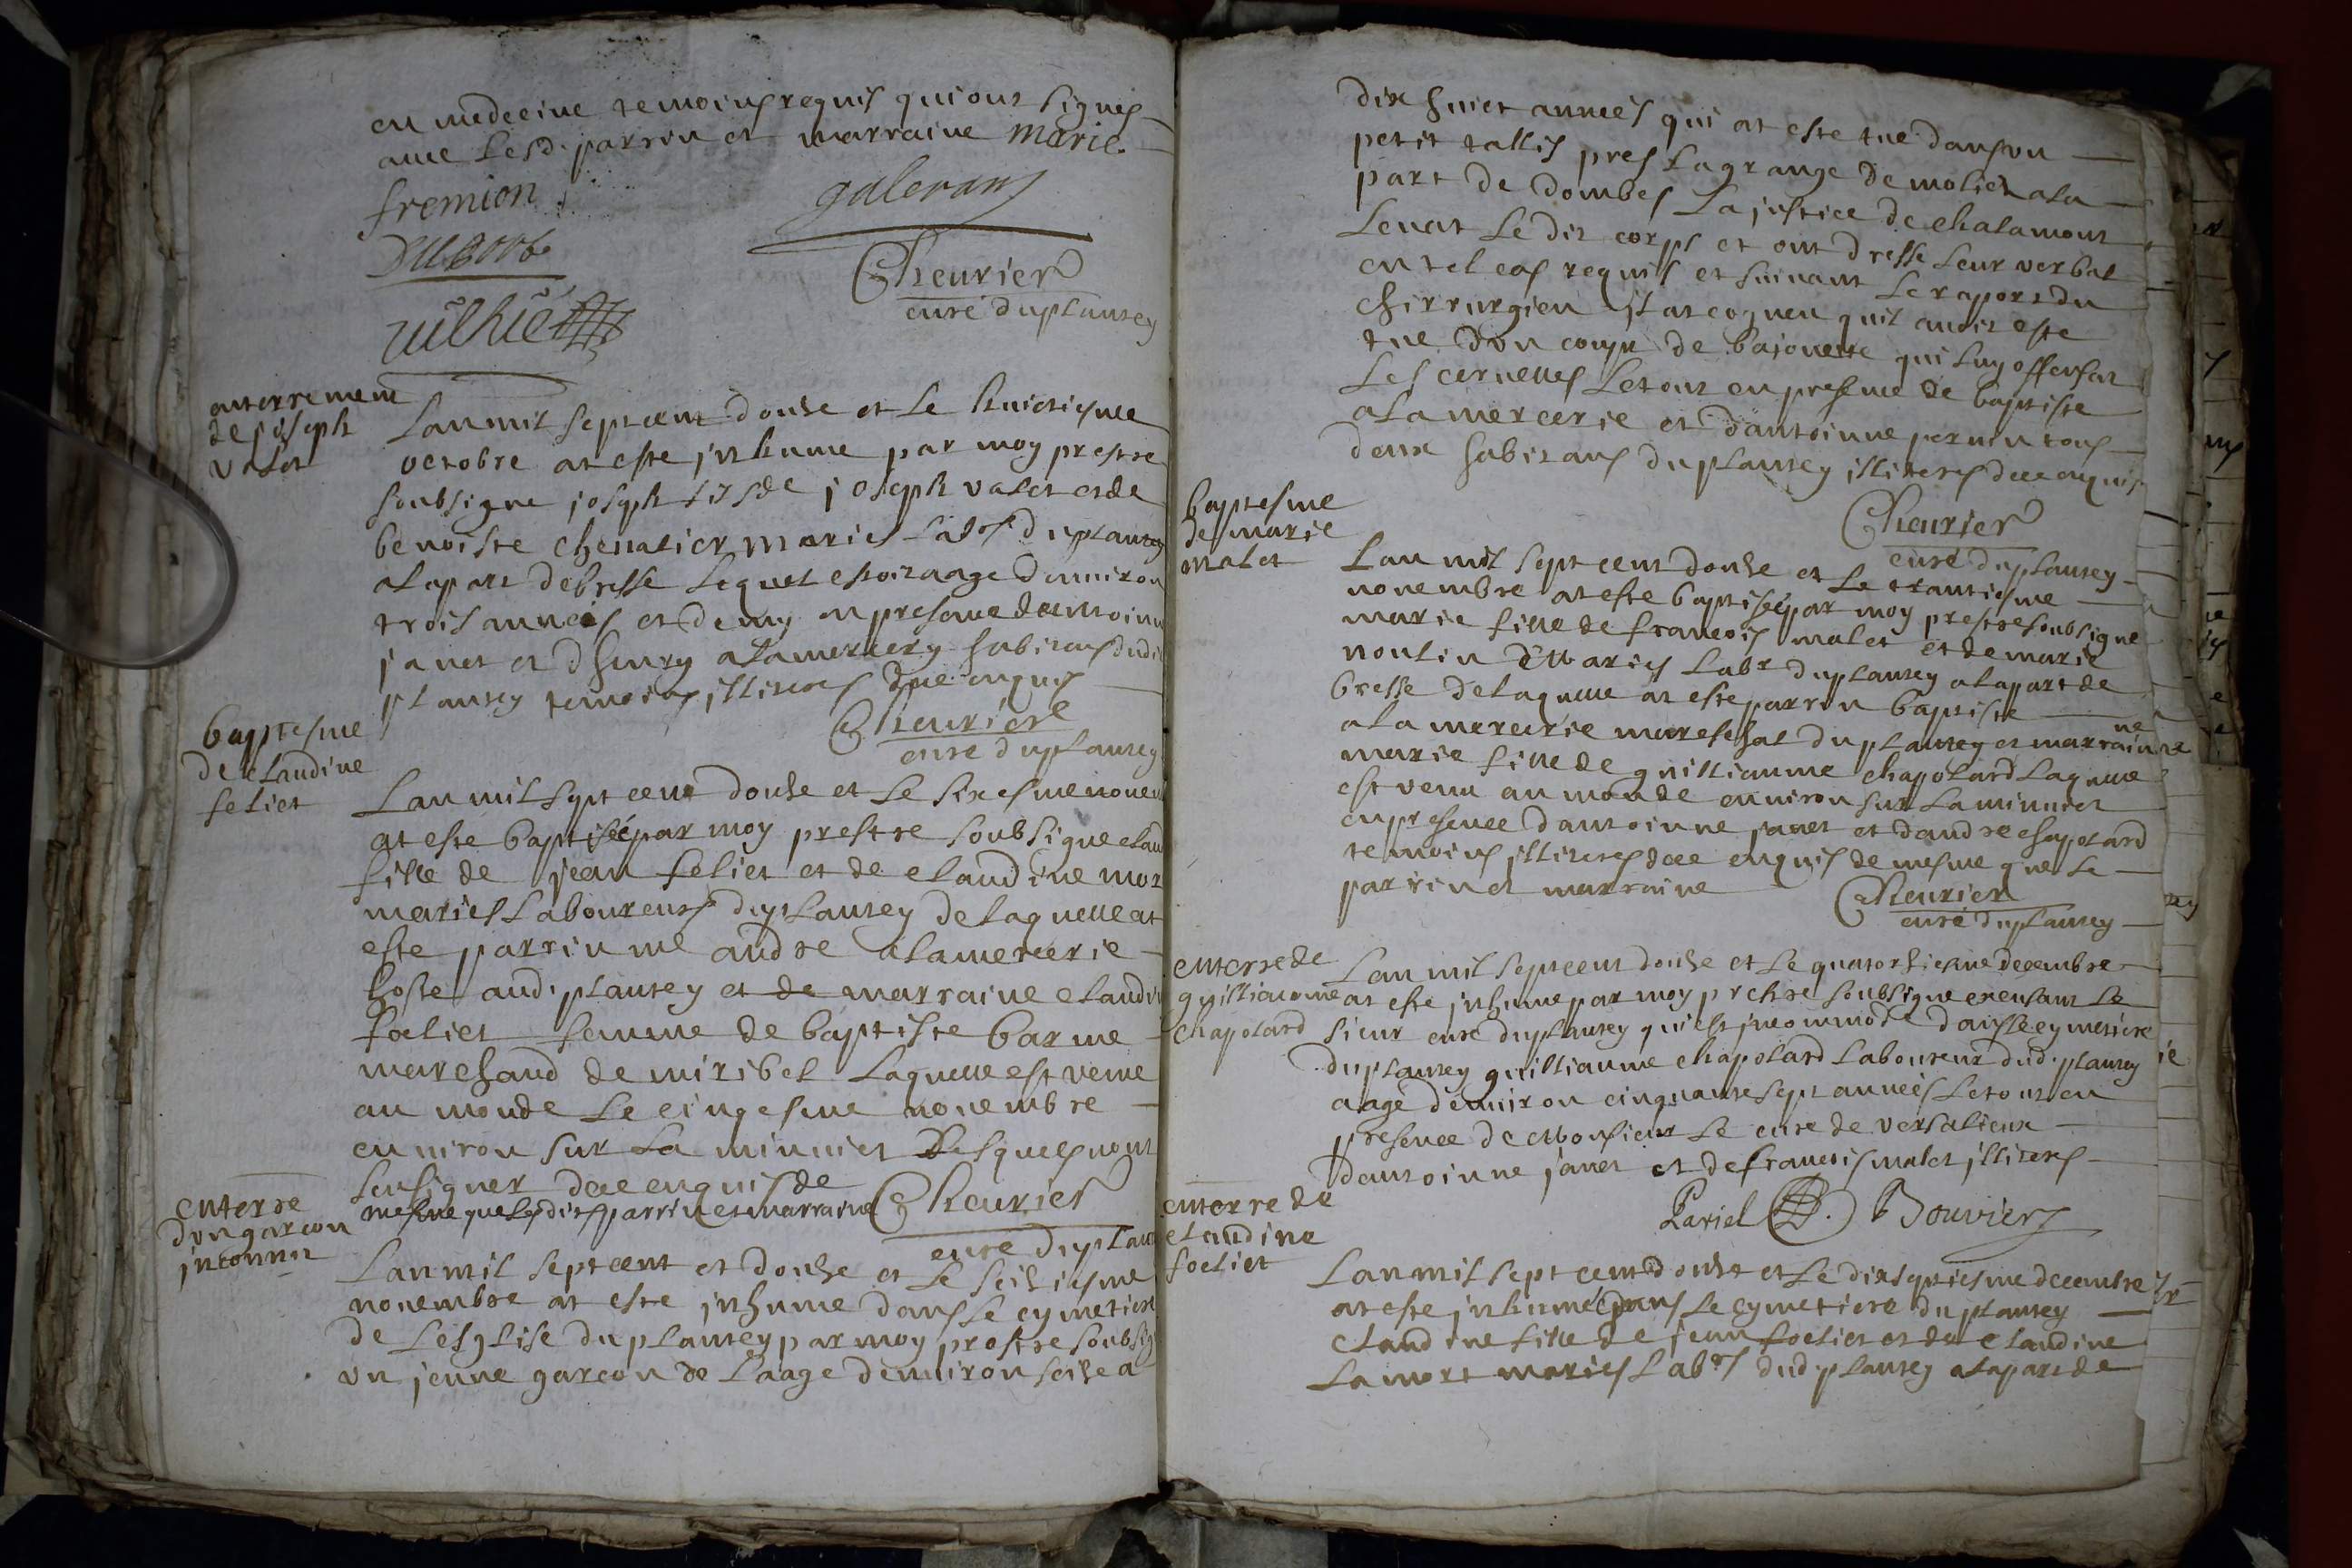 en medecine temoins requis qui ont signes
avec lesd. parrin et marraine marie
fremion galeran
Duboob
Cheurier
curé du plantey
enterrement
de joseph
valet
Lan mil sept cent douse et le huictiesme
octobre at este inhume par moy prestre
soubsigne joseph fils de joseph valet et de
benoiste chevalier maries labrs du plantey
a la part de bresse lequel estoit aage denviron
trois annees et demy en presence dantoinne
janet et dhenry alamercery habitans dudit
plantey temoins illiteres dece enquis
Cheurier
curé du plantey
baptesme
de claudine
feliet
Lan mil sept cent douse et le sixesme novem
at este baptisée par moy prestre soubsigne clau
fille de jean feliet et de claudine mor
maries laboureurs du plantey de laquelle at
este parrin me andre alamercerie
hoste aud. plantey et de marraine claudi
foeliet femme de baptiste barme
marchand de miribel laquelle est venue
au monde le cinqesme novembre
environ sur la minuiet lesquels nont
seu signer dece enquis de
mesme que lesdits parrin et marraine Cheurier
curé du plan
enterre
dun garcon
inconnu
Lan mil sept cent et douse et le seisiesme
novembre at este inhume dans le cymetiere
de leglise du plantey par moy prestre soubsig
un jeune garcon de laage denviron seise a
dix huict annees qui at este tue dans un
petit tallis pres la grange de moliet a la
part de dombes la justice de chalamont
levat le dit corps et ont dresse leur verbal
en tel cas requis et suivant le raport du
chirrurgien il at cogneu quil avoit este
tue dun coupt de bajonette qui luy offensat
les cervelles le tout en presence de baptiste
alamercerie et dantoinne pernin tous
deux habitans du plantey illiteres dece enquis
Cheurier
curé du plantey
baptesme
de marie
malet
Lan mil sept cent douse et le trantiesme
novembre at este baptisée par moy prestre soubsigne
marie fille de francois malet et de marie
moulin maries labr du plantey a la part de
bresse de laquelle at este parrin baptiste
alamercerie mareschal du plantey et marraine
marie fille de guilliaume chapolard laquelle
est venu au monde environ sur la minuiet
en presence dantoinne janet et dandre chapolard
temoins illiteres dece enquis de mesme que le
parrin et marraine Cheurier
curé du plantey
enterre de
guilliaume
chapolard
Lan mil sept cent douse et le quatorsiesme decembre
at este inhume par moy prestre soubsigne excusant le
sieur curé du plantey qui est incommodé dans le cymetiere
du plantey guilliaume chapolard laboureur dud. plantey
aagé denviron cinquante sept annees le tout en
presence de monsieur le curé de versalieux
dantoinne janet et de francois malet illiteres
Pariel Bouvier
enterre de
claudine
foeliet
Lan mil sept cent douse et le dixseptiesme decembre
at este inhumé dans le cymetiere du plantey
claudine fille de jean foeliet et de claudine
lamort maries labrs dud. plantey a la part de